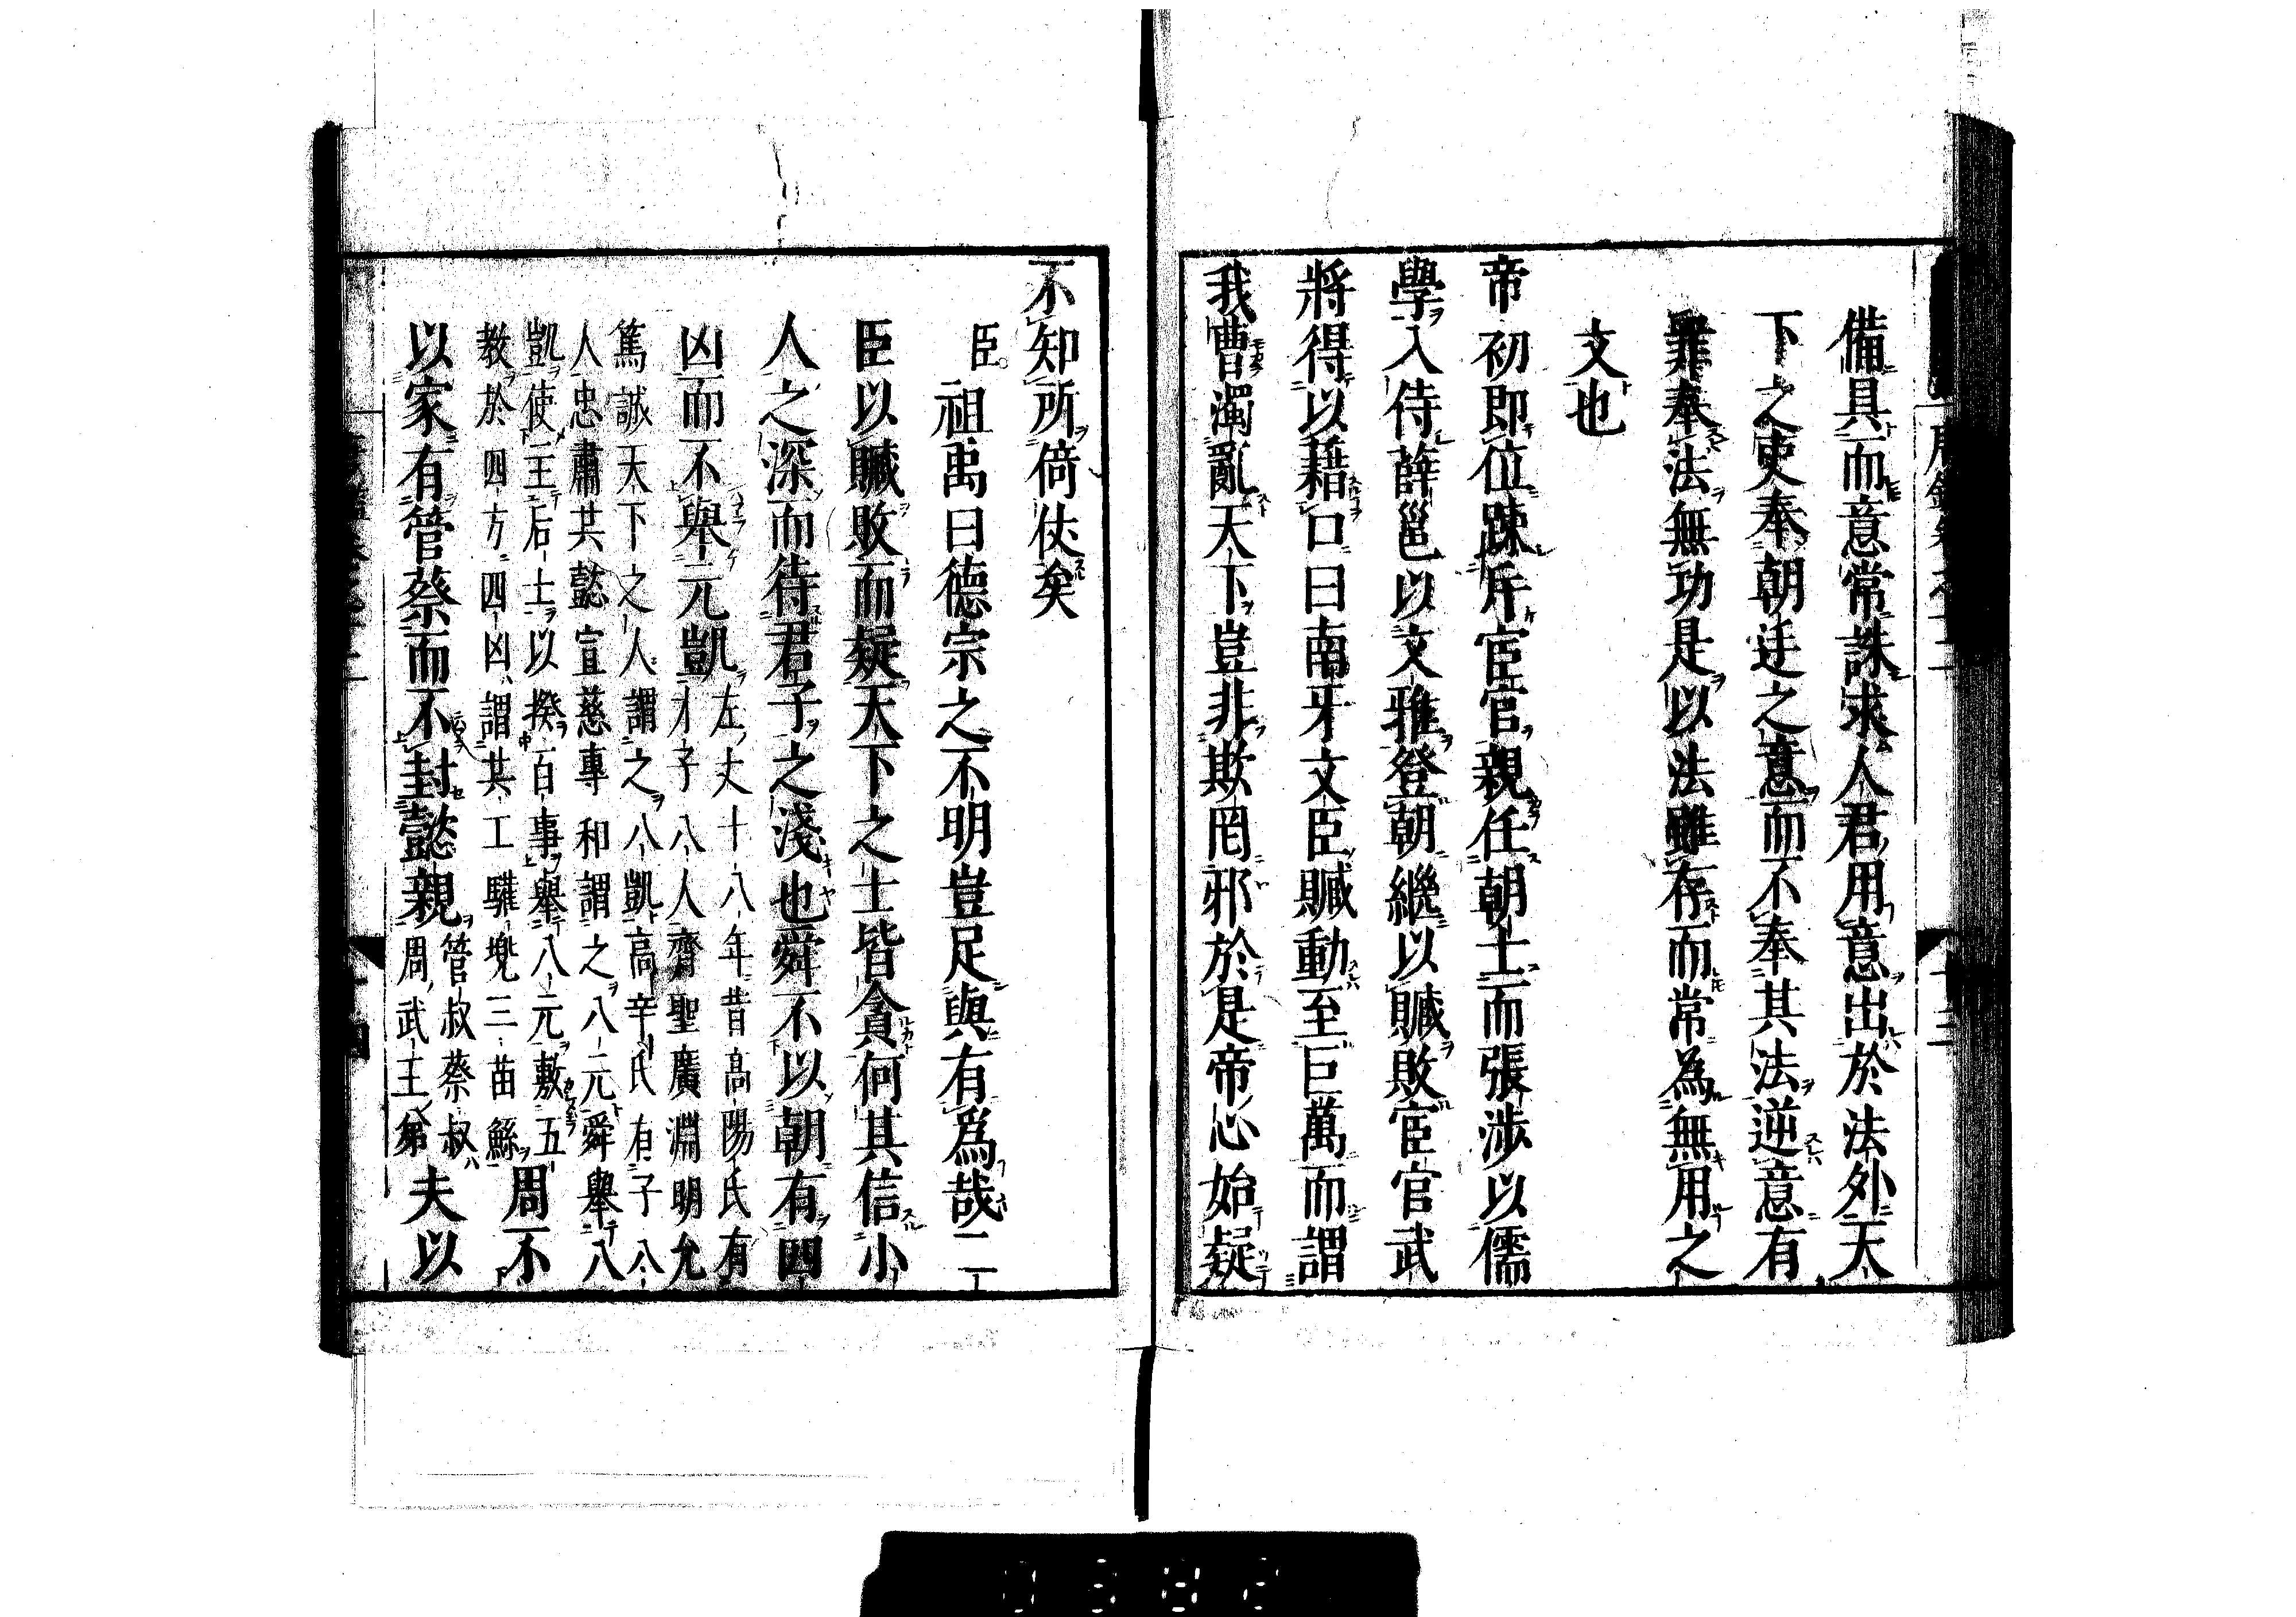 備具而意常誅求人君用意出於法外天
下之吏奉朝廷之意而不奉其法逆意有
罪奉法無功是以法雖存而常為無用之
文也
帝初即位踈斥宦官親任朝士而張涉以儒
學入侍薛邕以文雅登朝繼以贓敗宦官武
將得以藉口曰南牙文臣贓動至巨萬而謂
我曹濁亂天下豈非欺罔邪於是帝心始疑
不知所倚仗矣
臣祖禹曰德宗之不明豈足與有爲哉二
臣以贓敗而疑天下之士皆貪何其信小
人之深而待君子之淺也舜不以朝有四
凶而不舉元凱左丈十八年昔高陽氏有
才子八人齊聖廣淵明允
篤誠天下之人謂之八凱高辛氏有子八
人忠肅共懿宣慈專和謂之八元舜舉八
凱使主后土以揆百事舉八元敷五
教於四方四凶謂其工驩兜三苗鯀周不
以家有管蔡而不封懿親管叔蔡叔
周武王弟夫以